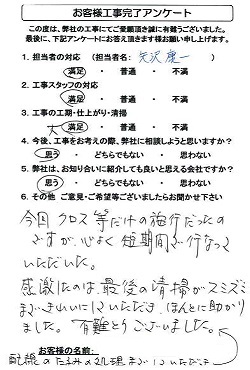 お客様工事完了アンケート
この度は、弊社の工事にてご愛顧頂き誠に有難うございました。
最後に、下記アンケートにお答え頂きます様お願い申し上げます。
1. 担当者の対応 (担当者名: 矢沢 慶一 )
満足 ・ 普通 ・ 不満
2. 工事スタッフの対応
満足 ・ 普通 ・ 不満
3. 工事の工期・仕上がり・清掃
大 満足 ・ 普通 ・ 不満
4. 今後、工事をお考えの際、弊社に相談しようと思いますか?
思う ・ どちらでもない ・ 思わない
5. 弊社は、お知り合いに紹介しても良いと思える会社ですか?
思う ・ どちらでもない ・ 思わない
6. その他 ご意見・ご希望等ございましたらお聞かせ下さい
今回 クロス等だけの施行だったの
ですが、心よく 短期間で行なって
いただいた。
感激したのは、最後の清掃がスミズミ
まできれいにしていただき、ほんとに助かり
ました。有難とうございました。
お客様の名前:
配線の
処理までしていただき